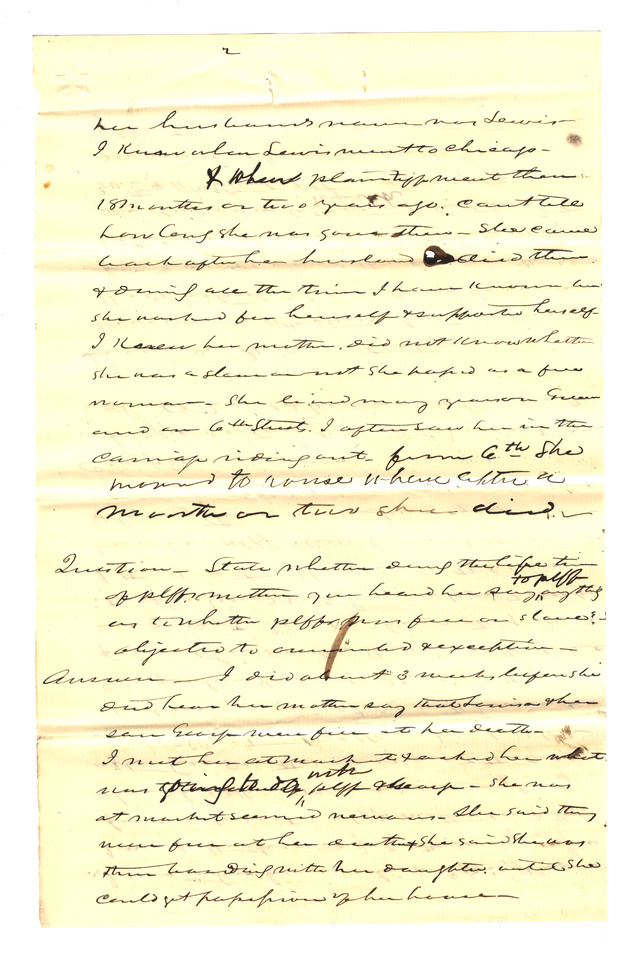 2
her husband's name was Lewis -
I Know when Lewis went to Chicago -
& When plaintiff went then
18 months or two years ago. can't tell
how long she was gone then - She came
back after her husband died there
& during all the time I have known her
she worked for herself & supported herself
I Knew her mother. did not Know whether
she was a slave or not she passed as a free
woman - She lived many years on Green
and on 6th Street. I often saw her in the
carriage riding out - from 6th She
moved to house where after a
month or two she died. -
Question - State whether during the life time
of plffs mother you heard her say to plff anything
as to whether plff was free or slave? -
objected to overruled & exception -
Answer - I did about 3 weeks before she
died hear her mother say that Louisa & her
son George were free at her death -
I met her at market & asked her what
was going to do with plff & George - She was
at market seemed nervous. She said they
were free at her death & she said she was
then boarding with her daughter until she
could get possession of her house -